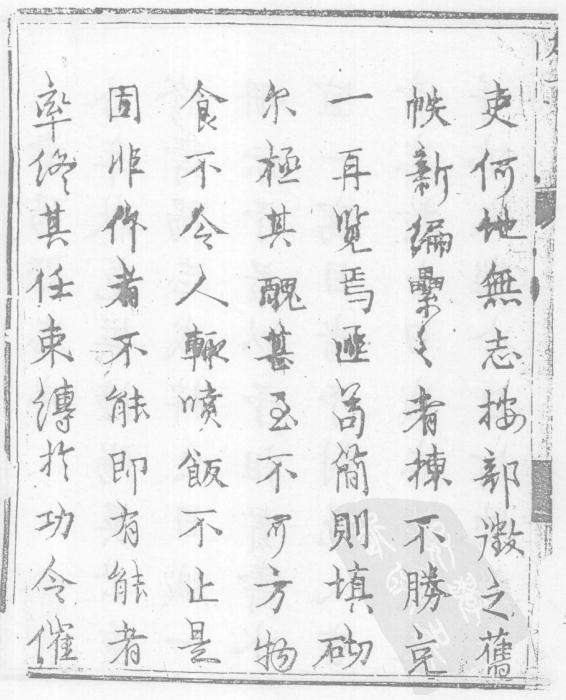 吏何地無志按部徵之舊
帙新編纍〻者揀不勝充
一再覽焉匪苟簡則填砌
尔極其醜甚至不可方物
食不令人輙噴飯不止是
固非作者不能即有能者
率終其任束縳扵功令催